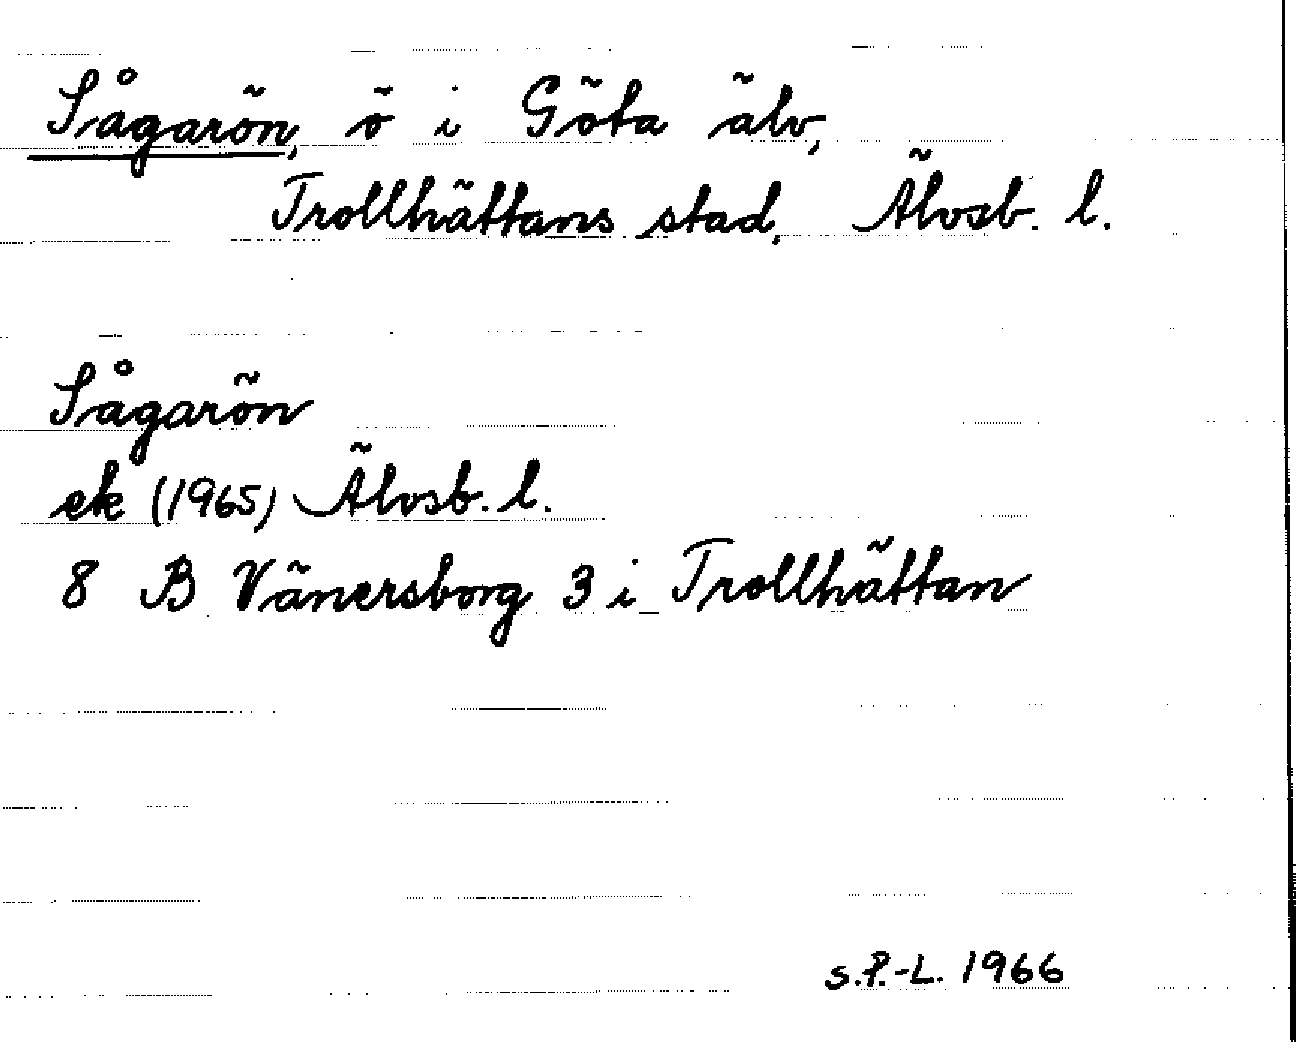 Sågarön, ö i Göta älv,
Trollhättans stad, Älvsb. l.
Sågarön
ek (1965) Älvsb. l.
8 B Vänersborg 3 i Trollhättan
S.P.-L. 1966